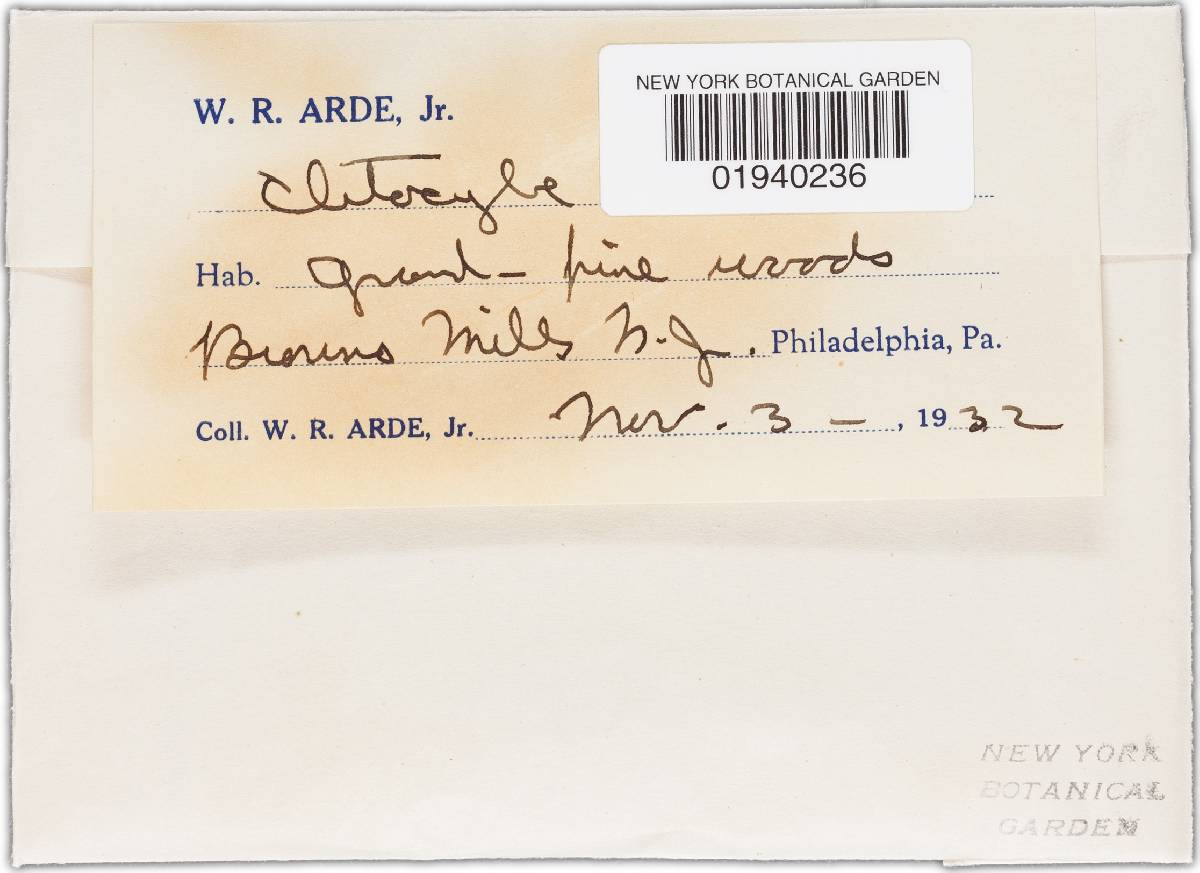 NEW YORK BOTANICAL GARDEN
01940236
W. R. ARDE, Jr.
Clitocybe
Hab. Ground - pine woods
Browns Mills N.J. Philadelphia, Pa.
Coll. W. R. ARDE, Jr. Nov. 3 - , 1932
NEW YORK
BOTANICAL
GARDEN